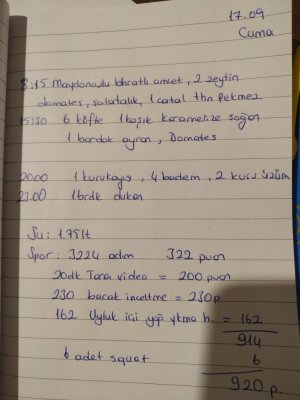 17.09
Cuma
8:15 Maydonozlu baharatlı omlet, 2 zeytin
domates, salatalık, 1 çatal thn pekmez
15:30 6 köfte 1 kaşık karamelize soğan
1 bardak ayran, Domates
20.00 1 kuru kayısı, 4 badem, 2 kuru üzüm
23.00 1 brdk
Su: 1.75 lt
Spor: 3224 adım 322 puan
20dk Tona video = 200 puan
230 bacak inceltme = 230 p
162 Uyluk içi yağ ykma h. = 162
914
6 adet squat 6
920 p.